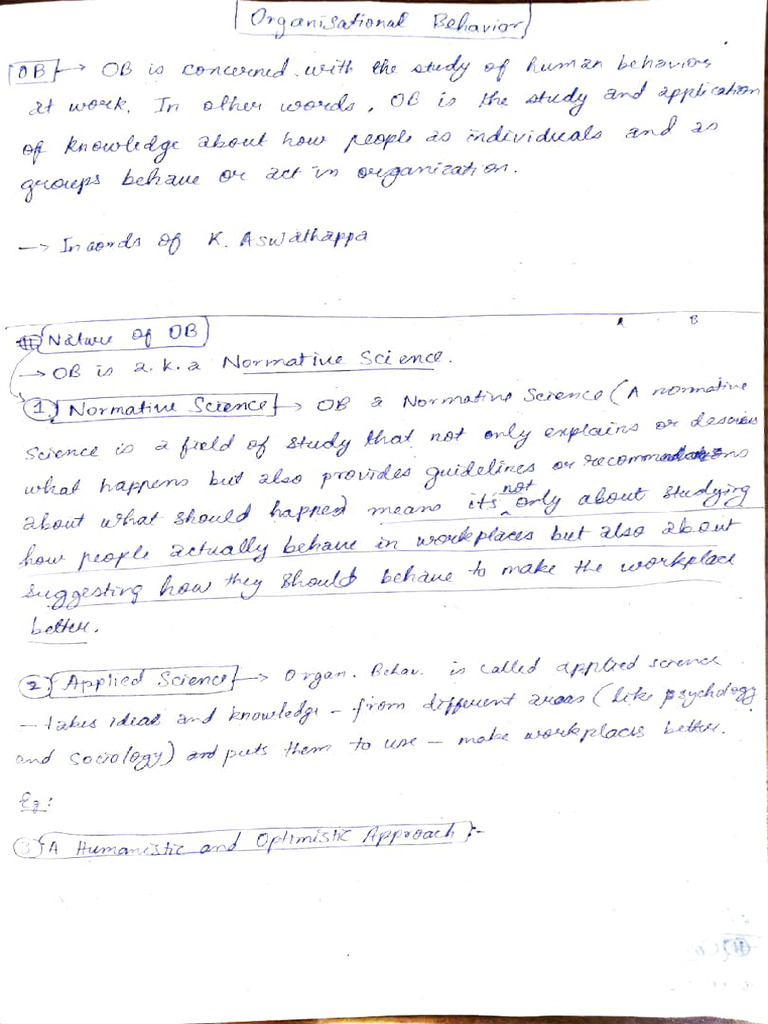 Organisational Behavior
OB → OB is concerned with the study of human behaviour
at work. In other words, OB is the study and application
of knowledge about how people as individuals and as
groups behave or act in organization.
→ In words of K. Aswathappa
A B
Nature of OB
→ OB is a.k.a Normative Science.
1) Normative Science → OB a Normative Science (A normative
Science is a field of study that not only explains or
what happens but also provides guidelines or recommendations
about what should happen) means its not only about studying
how people actually behave in workplaces but also about
suggesting how they should behave to make the workplace
better.
2) Applied Science → Organ. Behav. is called applied science
- takes ideas and knowledge - from different areas (like psychology
and sociology) and puts them to use - make workplaces better.
Eg:
3) A Humanistic and Optimistic Approach :-